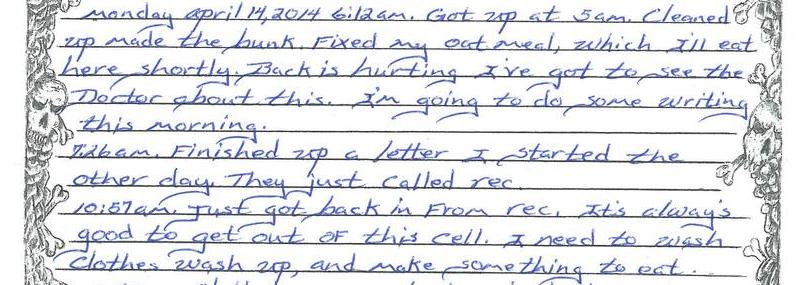 Monday April 14, 2014 6:12am. Got up at 5am. Cleaned
up made the bunk. Fixed my oat meal, which I'll eat
here shortly. Back is hurting I've got to see the
Doctor about this. I'm going to do some writing
this morning.
7:26am. Finished up a letter I started the
other day. They just called rec.
10:57am. Just got back in From rec. It's always
good to get out of this cell. I need to wash
clothes wash up, and make something to eat.